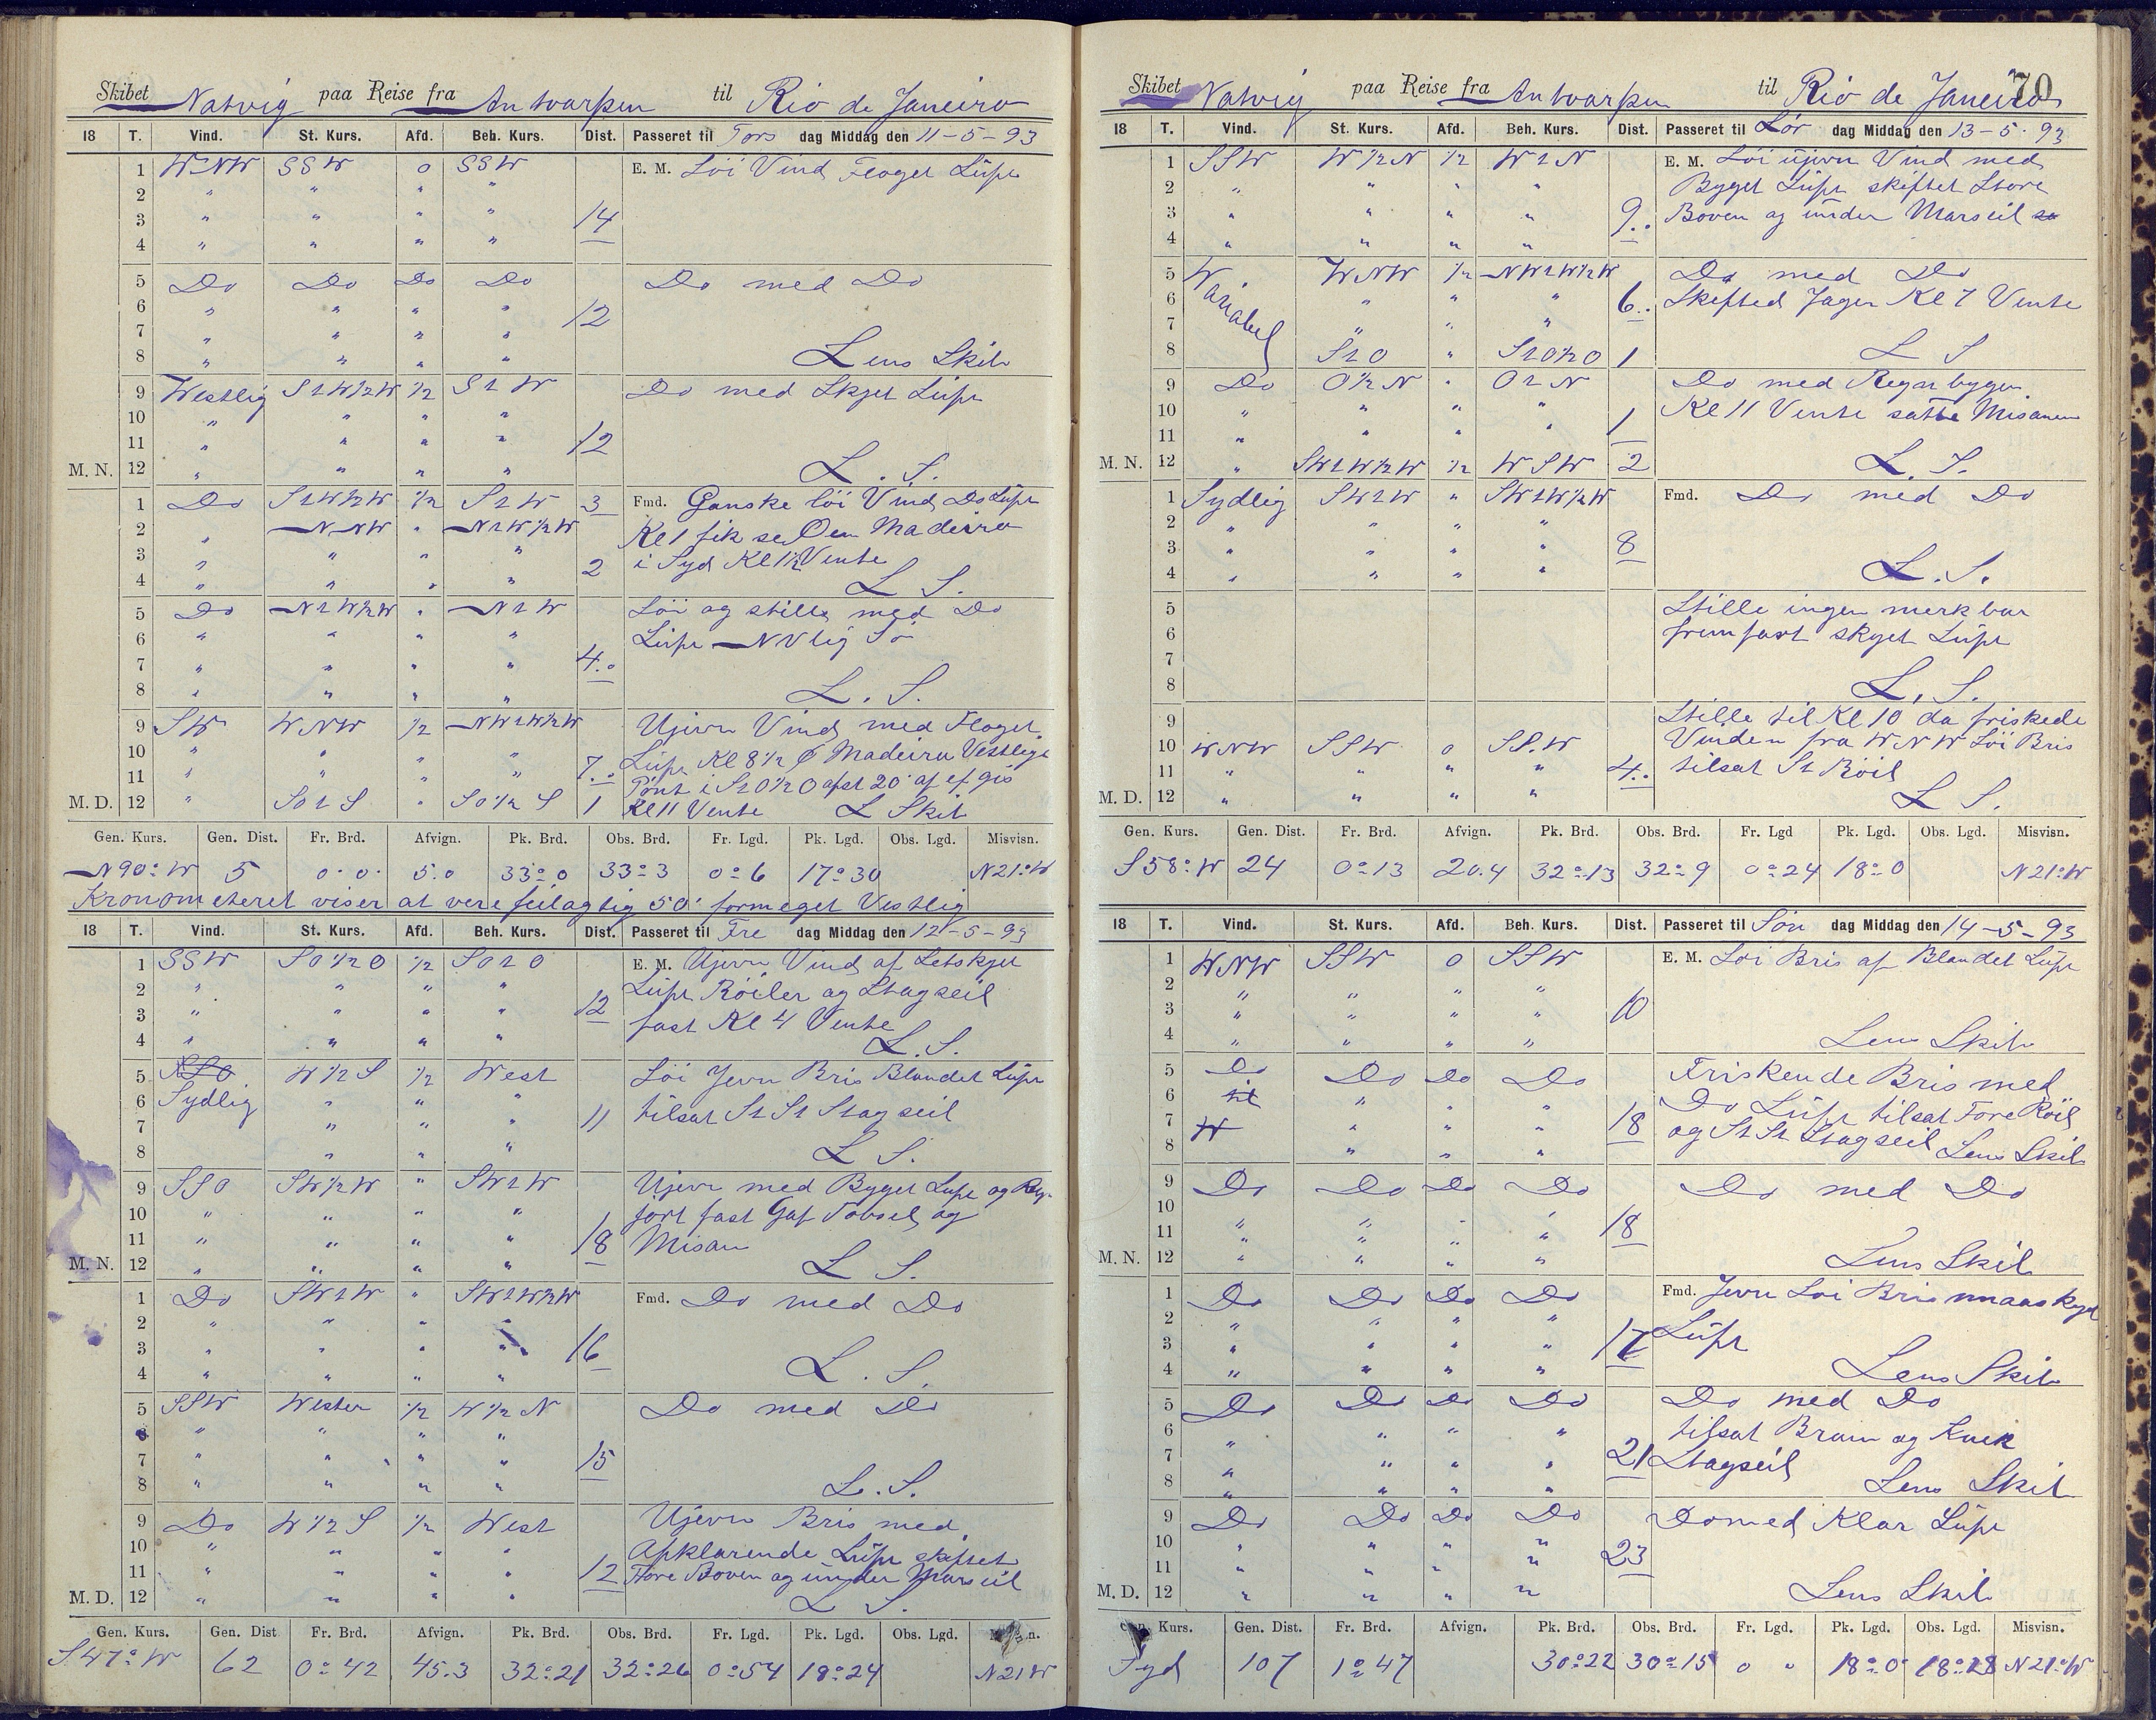 Skibet Natvig paa Reise fra Antvarpen til Rio de Janeiro
18 T. Vind. St. Kurs. Afd. Beh. Kurs. Dist. Passeret til Tors dag Middag den 11-5-93
1 WNW SSW 0 SSW E. M. Löi Vind Floget Lüft
2 " " " "
3 " " " " 14
4 " " " "
5 Do Do Do Do Do med Do
6 " " " " 12
7 " " " "
8 " " " " Lens Skib
9 Westlig S1W½W ½ S1W Do med Skyet Lüft
10 " " " "
11 " " " " 12
M. N. 12 " " " " L. S.
1 Do S1W½W ½ S1W 3 Fmd. Ganske löi Vind Do Lüft
2 " NNW " N1W½W Kl 1 fik se Öen Madeira
3 " " " " 2 i Syd Kl 1½ Vente
4 " " " " L S.
5 Do N1W½W " N1W Löi og stille med Do
6 " " " " Lüft NVlig Sö
7 " " " " 4.
8 " " " " L. S.
9 SW WNW ½ NW1W½W Ujevn Vind med Floget
10 " " " " 7. Lüft Kl 8½ Madeira Vestlige
11 " " " " Pönt i S1O½O afst 20' af gis
M. D. 12 " SO1S " SO½S 1 Kl 11 Vente L Skib
Gen. Kurs. Gen. Dist. Fr. Brd. Afvign. Pk. Brd. Obs. Brd. Fr. Lgd. Pk. Lgd. Obs. Lgd. Misvisn.
N90°W 5 0.0. 5.0 33°0 33°3 0°6 17°30 N21°W
Kronometeret viser at vere feilagtig 50' formeget Vestlig
18 T. Vind. St. Kurs. Afd. Beh. Kurs. Dist. Passeret til Fre dag Middag den 12-5-93
1 SSW SO½O ½ SO1O E. M. Ujevn Vind af Letskyet
2 " " " " Lüft Röiler og Stagseil
3 " " " " 12 fast Kl 4 Vente
4 " " " " L. S.
5 SSO W½S ½ West Löi Jevn Bris Blandet Lüft
6 Sydlig " " " tilsat St St Stagseil
7 " " " 11
8 " " " L S.
9 SSO SW½W " SW1W Ujevn med Byget Lüft og Reg
10 " " " " fört fast Gaf Tobseil og
11 " " " " 18 Misan
M. N. 12 " " " " L S.
1 Do SW1W " SW1W½W Fmd. Do med Do
2 " " " "
3 " " " " 16
4 " " " " L. S.
5 SSW Vesten ½ W½N Do med Do
6 " " " "
7 " " " " 15
8 " " " " L. S.
9 Do W½S ½ West Ujevn Bris med
10 " " " " Apklarende Lüft skiftet
11 " " " " 12 Fore Boven og ünder Marseil
M. D. 12 " " " " L S.
Gen. Kurs. Gen. Dist Fr. Brd. Afvign. Pk. Brd. Obs. Brd. Fr. Lgd. Pk. Lgd. Obs. Lgd.
S47°W 62 0°42 45.3 32°21 32°26 0°54 18°24 N21W
70
Skibet Natvig paa Reise fra Antvarpen til Rio de Janeiro
18 T. Vind. St. Kurs. Afd. Beh. Kurs. Dist. Passeret til Lör dag Middag den 13-5-93
1 SSW W½N ½ W1N E. M. Löi üjevn Vind med
2 " " " " Byget Lüft skiftet Store
3 " " " " 9. Boven og ünder Marseil
4 " " " "
5 Wariabel WNW ½ NW1W½W Do med Do
6 " " " 6. Skifted Jager Kl 7 Vente
7 " " "
8 S1O " S1O½O 1 L S
9 Do O½N " O1N Do med Regn bygen
10 " " " " Kl 11 Vente satte Misanen
11 " " " " 1
M. N. 12 " SW1W½W ½ WSW 2 L. S.
1 Sydlig SW1W " SW1W½W Fmd. Do med Do
2 " " " "
3 " " " " 8
4 " " " " L. S.
5 Stille ingen merkbar
6 frem fart skyet Lüft
7
8 L. S.
9 Stille til Kl 10 da friskede
10 WNW SSW 0 SSW Vinden fra WNW Löi Bris
11 " " " " 4. tilsat St Röil
M. D. 12 " " " " L S.
Gen. Kurs. Gen. Dist. Fr. Brd. Afvign. Pk. Brd. Obs. Brd. Fr. Lgd Pk. Lgd. Obs. Lgd. Misvisn.
S58°W 24 0°13 20.4 32°13 32°9 0°24 18°0 N21°W
18 T. Vind. St. Kurs. Afd. Beh. Kurs. Dist. Passeret til Sön dag Middag den 14-5-93
1 WNW SSW 0 SSW E. M. Löi Bris af Blandet Lüft
2 " " " "
3 " " " " 10
4 " " " " Lens Skib
5 Do Do Do Do Friskende Bris med
6 til " " " Do Lüft tilsat Fore Röil
7 W " " " 18 og St St Stagseil
8 " " " Lens Skib
9 Do Do Do Do Do med Do
10
11 " " " " 18
M. N. 12 " " " " Lens Skib
1 Do Do Do Do Fmd. Jevn Löi Bris smaaskyet
2 " " " " Lüft
3 " " " " 17
4 " " " " Lens Skib
5 Do Do Do Do Do med Do
6 " " " " tilsat Bram og Knek
7 " " " " 21 Stagseil
8 " " " " Lens Skib
9 Do Do Do Do Do med Klar Lüft
10 " " " " 23
11 " " " "
M. D. 12 " " " " Lens Skib
Kurs. Gen. Dist. Fr. Brd. Afvign. Pk. Brd. Obs. Brd. Fr. Lgd. Pk. Lgd. Obs. Lgd. Misvisn.
Syd 107 1°47 30°22 30°15 0 " 18°0 18°28 N21°W